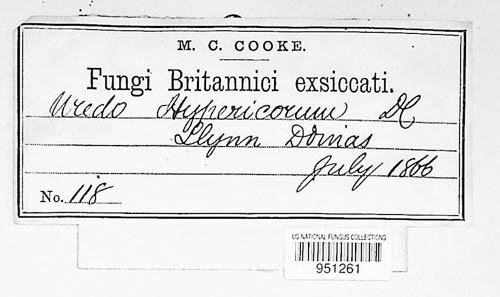 M. C. COOKE.
Fungi Britannici exsiccati.
Uredo Hypericorum DC
Llynn Dinas
July 1866
No. 118
US NATIONAL FUNGUS COLLECTIONS
951261